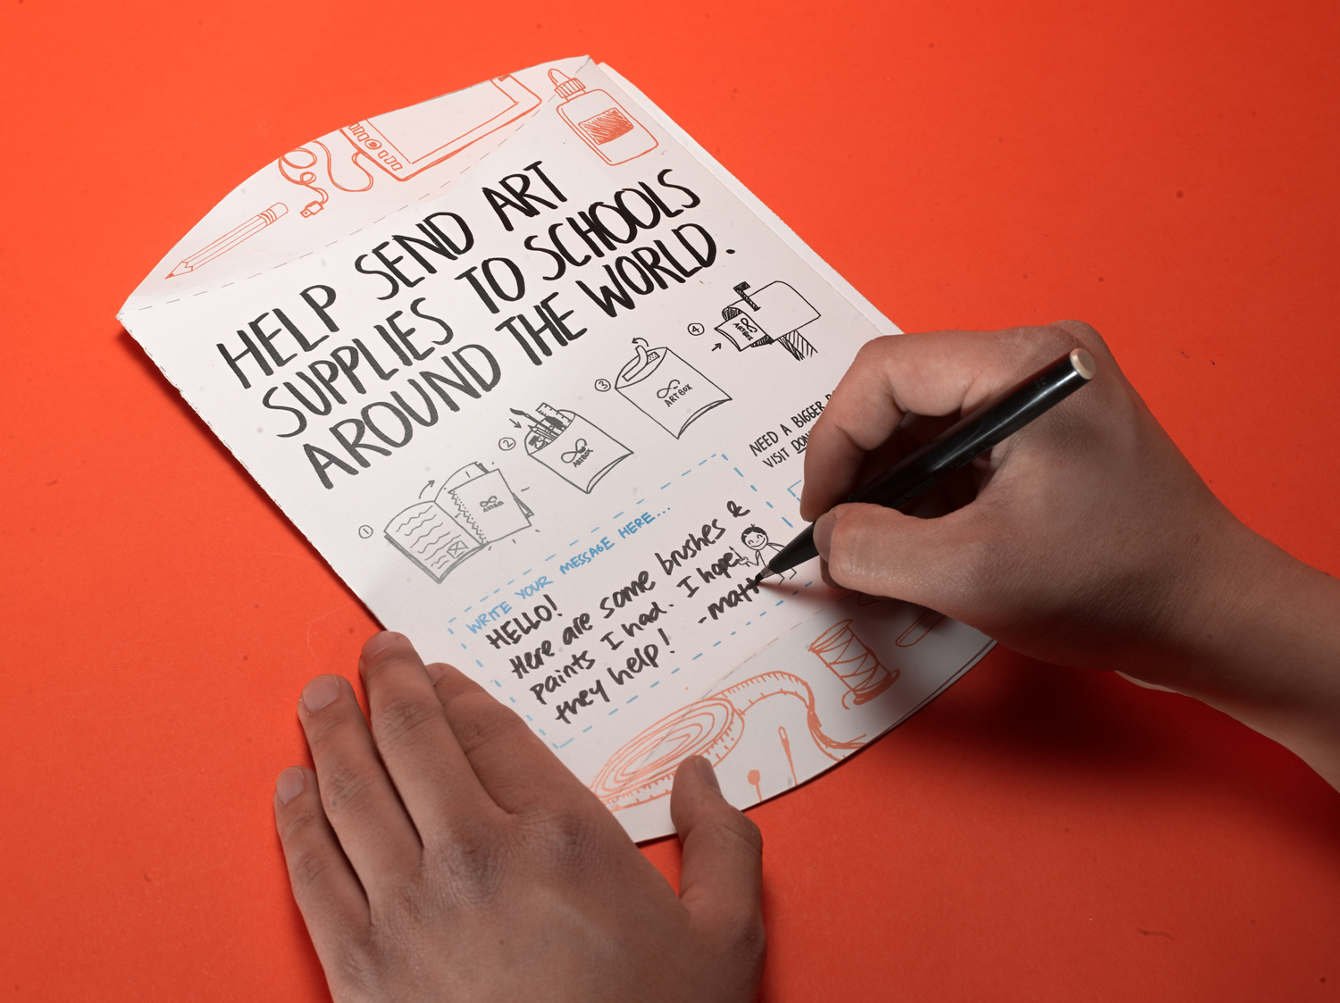 HELP SEND ART
SUPPLIES TO SCHOOLS
AROUND THE WORLD.
1
2
ARTBOX
3
ART BOX
4
ARTBOX
NEED A BIGGER
VISIT
WRITE YOUR MESSAGE HERE...
HELLO!
Here are some brushes &
paints I had. I hope
they help! -matt